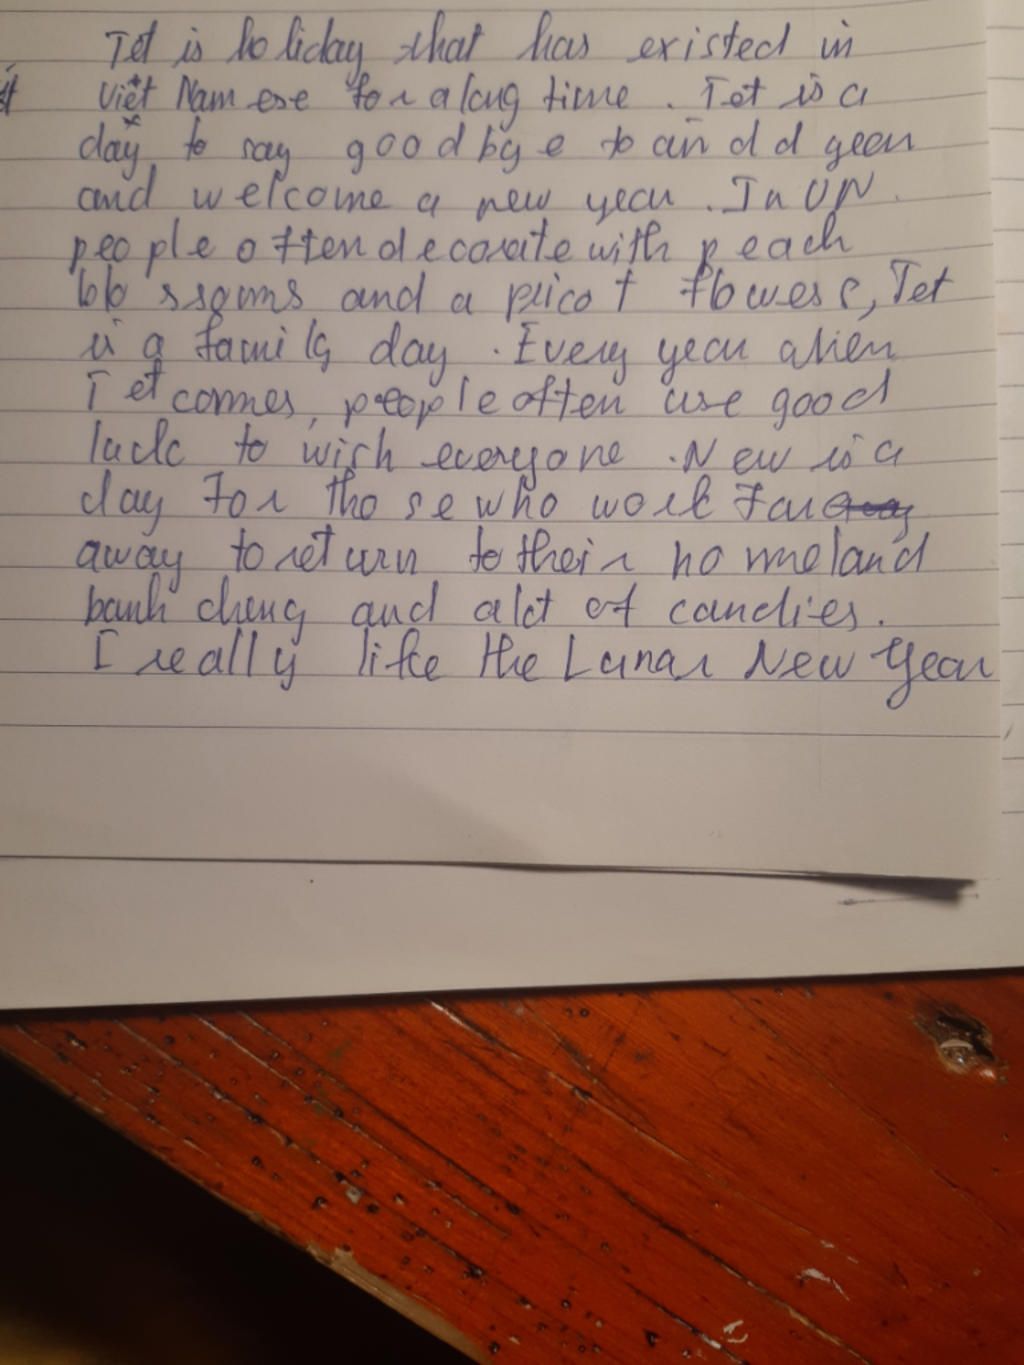 Tet is holiday that has existed in
Việt Namese for a long time. Tet is a
day to say goodbye to an old year
and welcome a new year. In VN
people often decorate with peach
blossoms and apricot flowers, Tet
is a family day. Every year when
Tet comes, people often use good
luck to wish everyone. New is a
day for those who work far
away to return to their homeland
banh chung and a lot of candies.
I really like the Lunar New Year